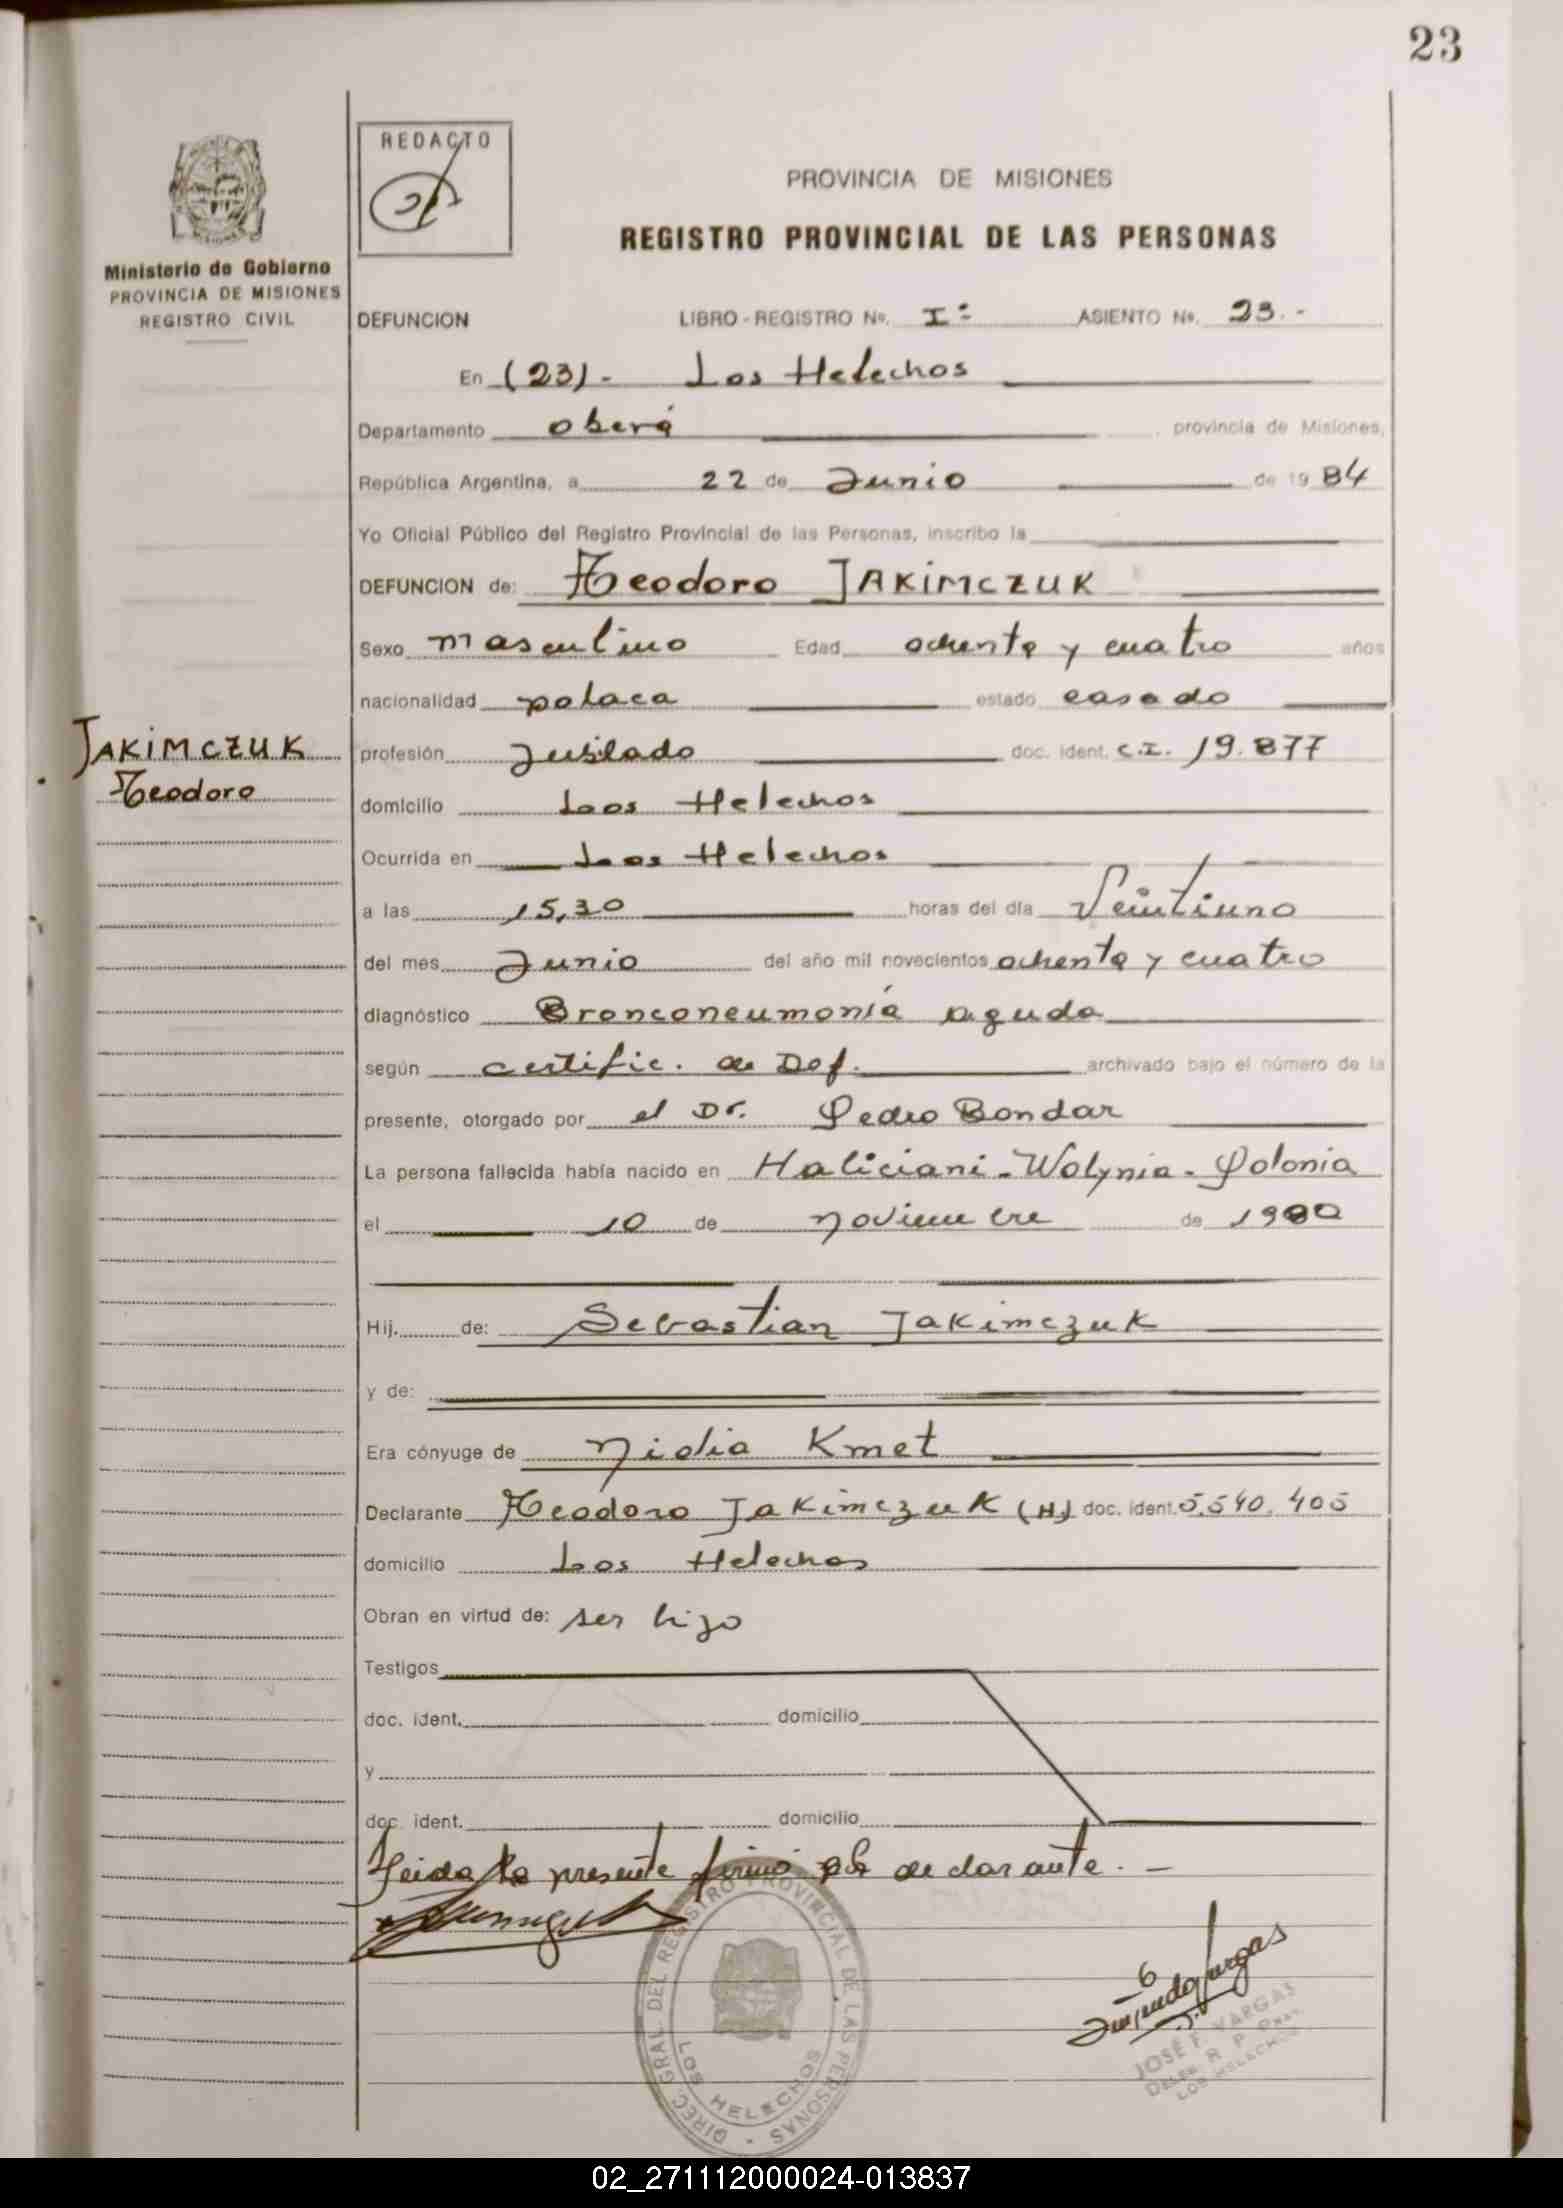 23
REDACTO
Ministerio de Gobierno
PROVINCIA DE MISIONES
REGISTRO CIVIL
PROVINCIA DE MISIONES
REGISTRO PROVINCIAL DE LAS PERSONAS
DEFUNCION LIBRO - REGISTRO Nº. Iº ASIENTO Nº. 23.-
En (23).- Los Helechos
Departamento Oberá provincia de Misiones,
República Argentina, a 22 de Junio de 1984
Yo Oficial Público del Registro Provincial de las Personas, inscribo la
DEFUNCION de: Teodoro JAKIMCZUK
Sexo masculino Edad ochenta y cuatro años
nacionalidad polaca estado casado
JAKIMCZUK
Teodoro
profesión Jubilado doc. ident. C.I. 19.877
domicilio Los Helechos
Ocurrida en Los Helechos
a las 15,30 horas del día Veintiuno
del mes Junio del año mil novecientos ochenta y cuatro
diagnóstico Bronconeumonía aguda
según certific. de Def. archivado bajo el número de la
presente, otorgado por el Dr. Pedro Bondar
La persona fallecida había nacido en Haliciani - Wolynia - Polonia
el 10 de noviembre de 1900
Hij. de: Sebastian Jakimczuk
y de:
Era cónyuge de Nidia Kmet
Declarante Teodoro Jakimczuk (H) doc. ident. 5.540.405
domicilio Los Helechos
Obran en virtud de: ser hijo
Testigos
doc. ident. domicilio
y
doc. ident. domicilio
Leida la presente firmó el declarante.-
DIREC. GRAL. DEL REGISTRO PROVINCIAL DE LAS PERSONAS
LOS HELECHOS
JOSÉ F. VARGAS
LOS HELECHOS
02_271112000024-013837